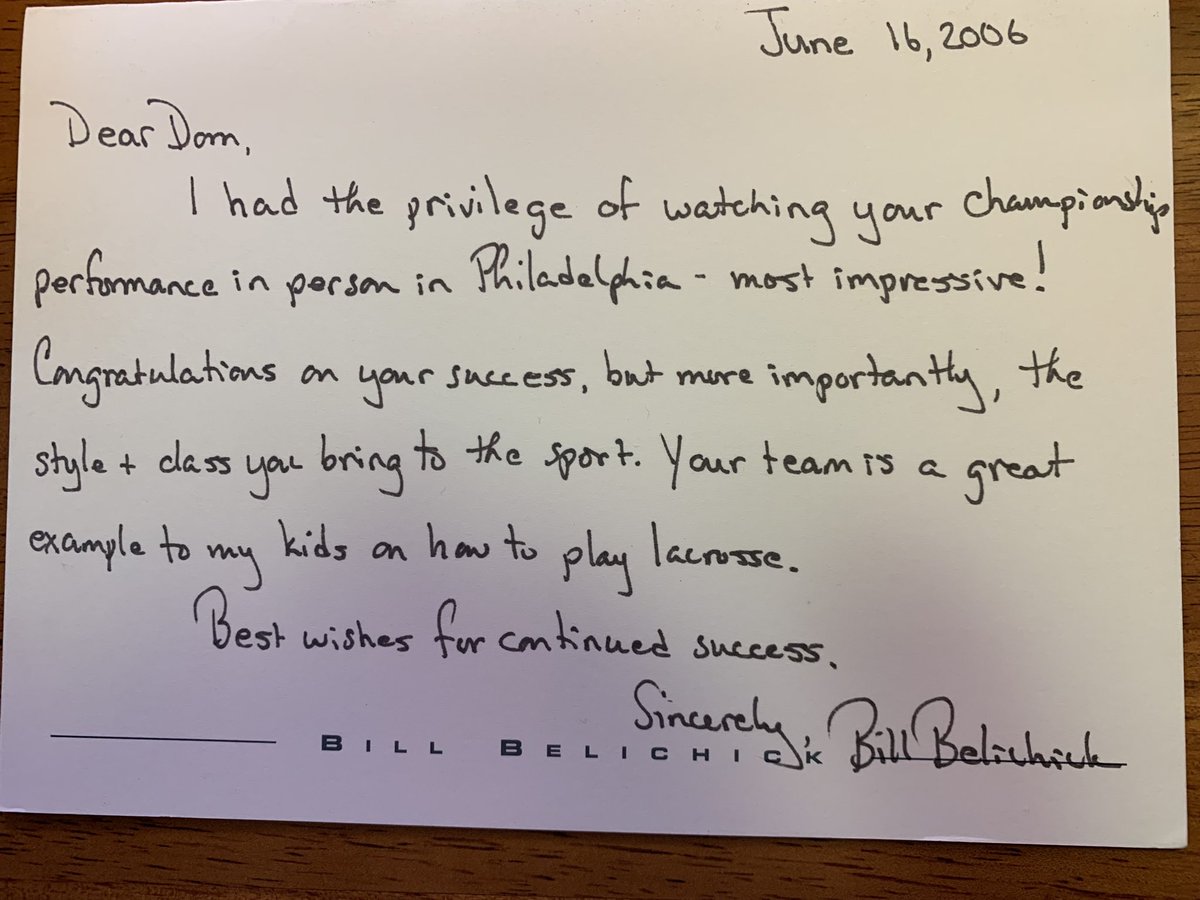 June 16, 2006
Dear Dom,
I had the privilege of watching your championship
performance in person in Philadelphia - most impressive!
Congratulations on your success, but more importantly, the
style + class you bring to the sport. Your team is a great
example to my kids on how to play lacrosse.
Best wishes for continued success.
Sincerely, Bill Belichick
BILL BELICHICK